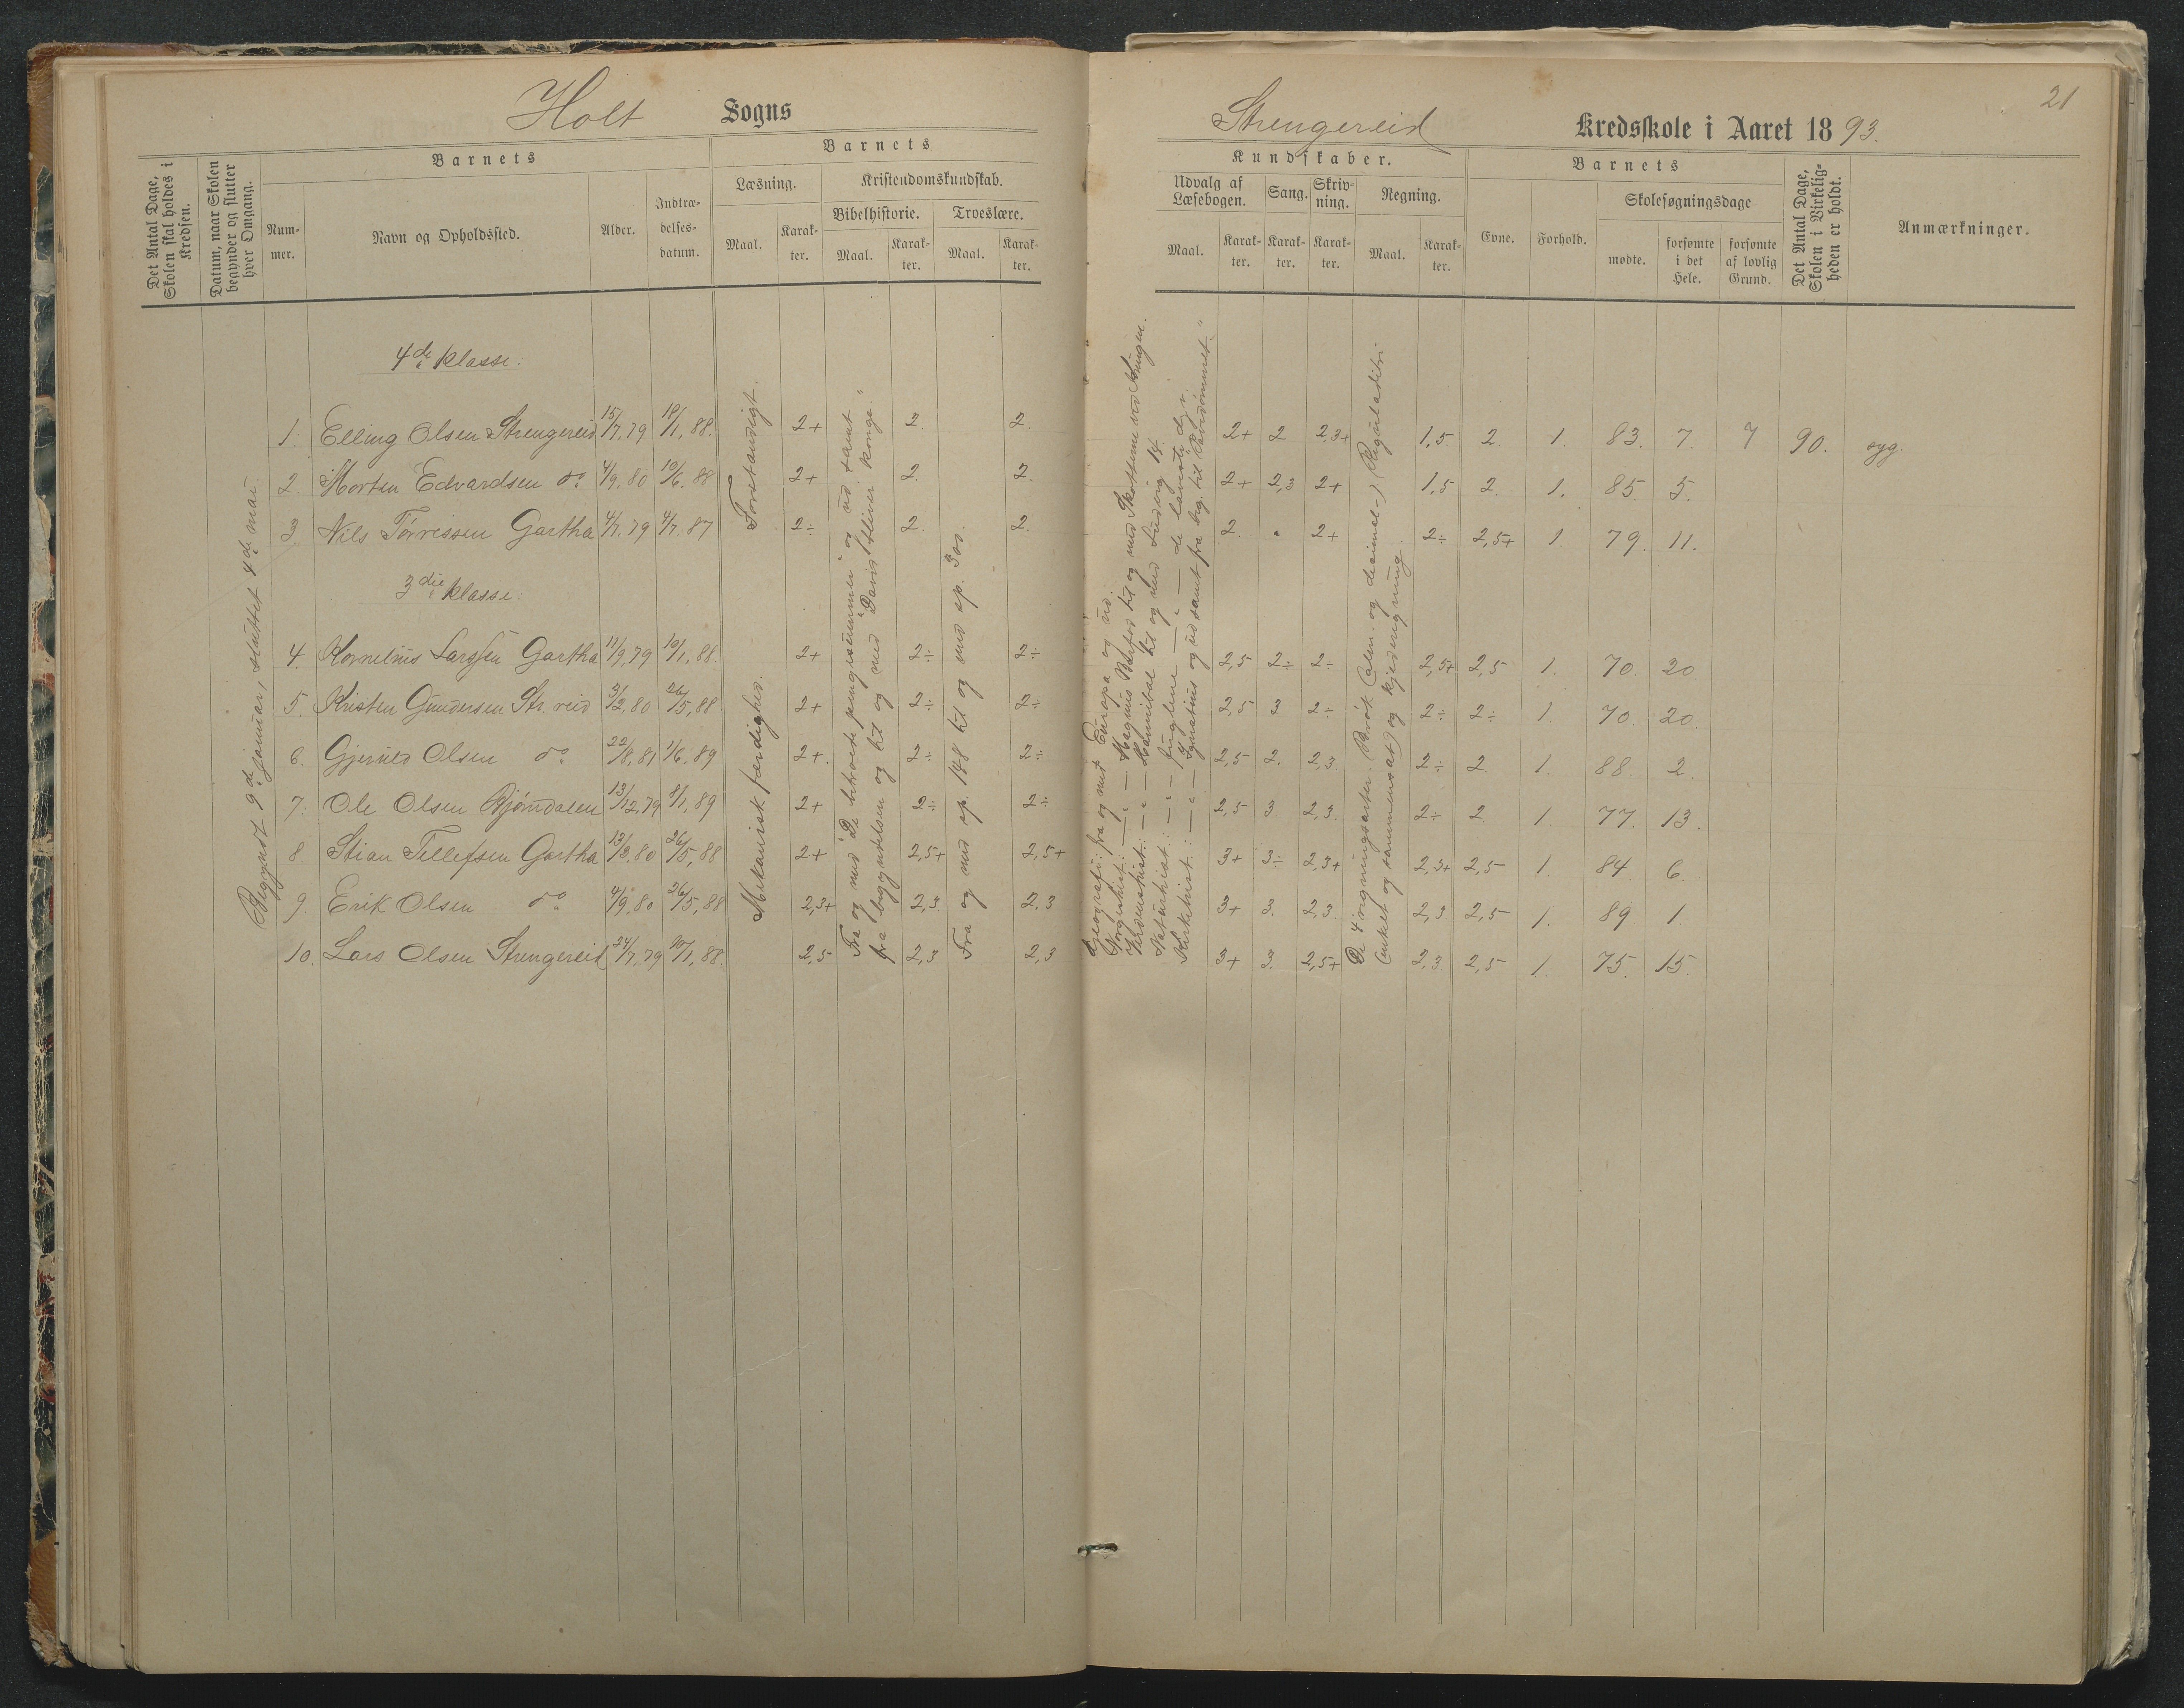 Holt Sogns
Det Antal Dage, Skolen skal holdes i Kredsen.
Datum, naar Skolen begynder og slutter hver Omgang.
Barnets
Num-mer.
Navn og Opholdssted.
Alder.
Indtræ-delses-datum.
Barnets
Læsning.
Maal.
Karak-ter.
Kristendomskundskab.
Bibelhistorie.
Maal.
Karak-ter.
Troeslære.
Maal.
Karak-ter.
Begyndt 9de januar, sluttet 4de mai
4de klasse:
1. Elling Olsen Strengereid 15/7,79 18/1,88. 2+ 2. 2.
2. Morten Edvardsen do 4/9,80 10/6,88 2+ 2. 2.
3. Nils Tørressen Gartha 4/7,79 4/7,87 2÷ 2. 2.
3die klasse:
4. Kornelius Larssen Gartha 11/9,79 10/1,88. 2+ 2÷ 2÷
5. Kristen Gundersen Str.reid 3/2,80 26/5,88 2+ 2÷ 2÷
6. Gjeruld Olsen do 22/8,81 1/6,89 2+. 2÷ 2÷
7. Ole Olsen Bjørndalen 13/12,79 8/1,89 2+ 2÷ 2÷
8. Stian Tellefsen Gartha 13/3,80 26/5,88 2+ 2,5+ 2,5+
9 Erik Olsen do 4/9,80 26/5,88 2,3+ 2,3. 2,3
10. Lars Olsen Strengereid 24/7,79 10/1,88. 2,5 2,3 2,3
Forstandigt.
Mekanisk færdighed.
Fra og med "De betroede penge" og ud samt
fra begyndelsen og til og med "David bliver konge."
Fra og med sp. 148 til og med sp. 300.
21
Strengereid Kredsskole i Aaret 1893.
Kundskaber.
Udvalg af Læsebogen.
Maal.
Karak-ter.
Sang.
Karak-ter.
Skriv-ning.
Karak-ter.
Regning.
Maal.
Karak-ter.
Barnets
Evne.
Forhold.
Skolesøgningsdage
mødte.
forsømte i det Hele.
forsømte af lovlig Grund.
Det Antal Dage, Skolen i Virkelig-heden er holdt.
Anmærkninger.
Geografi: fra og med Europa og ud.
Norgeshist: — " — Magnus Barfod til og med Skottene ved Kringen.
Verdenshist: — " — Hannibal til og med Ludvig 14.
Naturhist.: — " — fuglene — " — de
Kirkehist.: — " — Ignatius og ud samt fra beg. til
De 4 regningsarter. Brøk (alm.- og decimal-) Reguladetri
(enkel og sammensat) og kjederegning.
2+ 2 2,3+ 1,5 2. 1. 83. 7. 7 90. syg.
2+ 2,3 2+ 1,5 2. 1. 85. 5.
2. " 2+ 2÷ 2,5+ 1. 79. 11.
2,5 2÷ 2÷ 2,5+ 2,5 1. 70. 20.
2,5 2 2÷ 2÷ 2÷ 1. 70. 20.
2,5 2. 2,3. 2÷ 2. 1. 88. 2.
2,5 3 2,3. 2÷ 2. 1. 77. 13.
3+ 3÷ 2,3+ 2,3+ 2,5 1. 84. 6.
3+ 3. 2,3. 2,3 2,5 1. 89. 1.
3+ 3. 2,5+ 2,3 2,5 1. 75. 15.